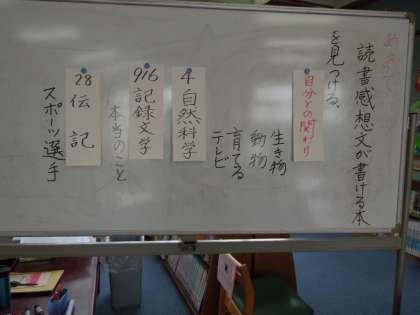 めあて
読書感想文が書ける本
を見つける。
自分との関わり
生き物
動物
育てる
テレビ
4 自然科学
916 記録文学
本当のこと
28 伝記
スポーツ選手